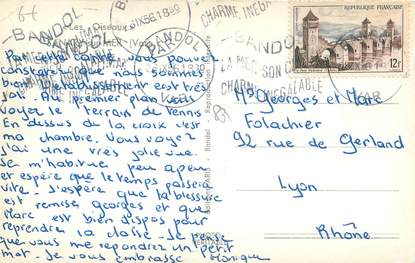 BANDOL
VAR
CHARME INEGALABLE
LA MER SON
RÉPUBLIQUE FRANÇAISE
12F
Les Oiseaux
Par cette carte vous pouvez
constater que nous sommes
bien l'établissement est très
joli. Au premier plan vous
voyez le terrain de tennis
En dessus de la croix c'est
ma chambre. Vous voyez
j'ai une très jolie vue.
Je m'habitue peu a peu
et espère que le temps passera
vite! J'espère que la blessure
est remise, georges et que
Marc est bien dispos pour
reprendre la classe. Je pense
que vous me repondrez un petit
mot. Je vous embrasse
Monique
Georges et Marc
Folachier
92 rue de Gerland
Lyon
Rhône